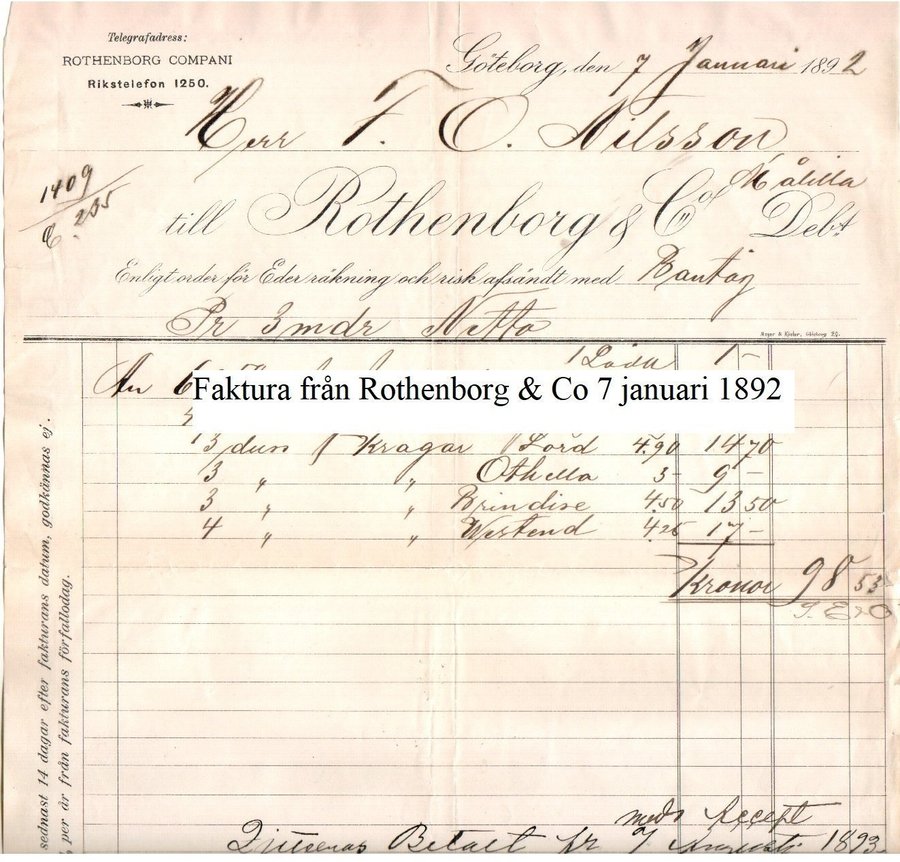 Telegrafadress:
ROTHENBORG COMPANI
Rikstelefon 1250.
Göteborg, den 7 Januari 1892
Herr F. O. Nilsson
Målilla
1409
235
till Rothenborg & Co Debt
Enligt order för Eder räkning och risk afsändt med Bantåg
Pr 3 mdr Netto
1 Låda 1 –
An 6
Faktura från Rothenborg & Co 7 januari 1892
3 duss Kragar Lord 4.90 14 70
3 " " Othello 3 – 9 –
3 " " Brindise 4.50 13 50
4 " " Westend 4.25 17 –
Kronor 98 53
S. E. & O.
sednast 14 dagar efter fakturans datum, godkännas ej.
per år från fakturans förfallodag.
meds Accept
Betalt pr 7 Augusti 1893